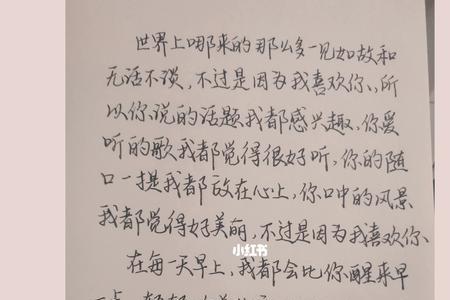 世界上哪来的那么多一见如故和
无话不谈,不过是因为我喜欢你,所
以你说的话题我都感兴趣,你爱
听的歌我都觉得很好听,你的随
口一提我都放在心上,你口中的风景
我都觉得好美丽,不过是因为我喜欢你、
小红书
在每一天早上,我都会比你醒来早
一点,轻轻